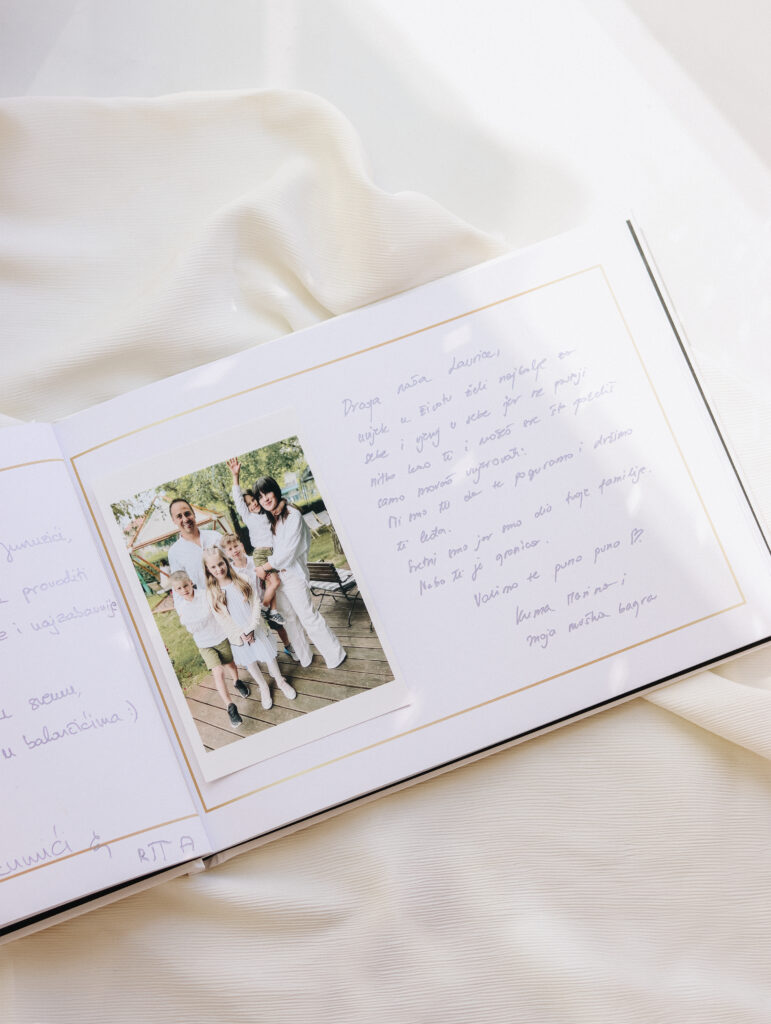 Junuzići,
provoditi
i najzabavnije
svemu,
u balončićima :)
RITA
Draga naša Laurice,
uvijek u životu želi najbolje za
sebe i vjeruj u sebe jer ne postoji
nitko kao ti i možeš sve što poželiš
samo moraš vjerovati.
Mi smo tu da te poguramo i držimo
ti leđa.
Sretni smo jer smo dio tvoje familije.
Nebo ti je granica.
Volimo te puno puno
Kuma Marina i
moja muška bagra